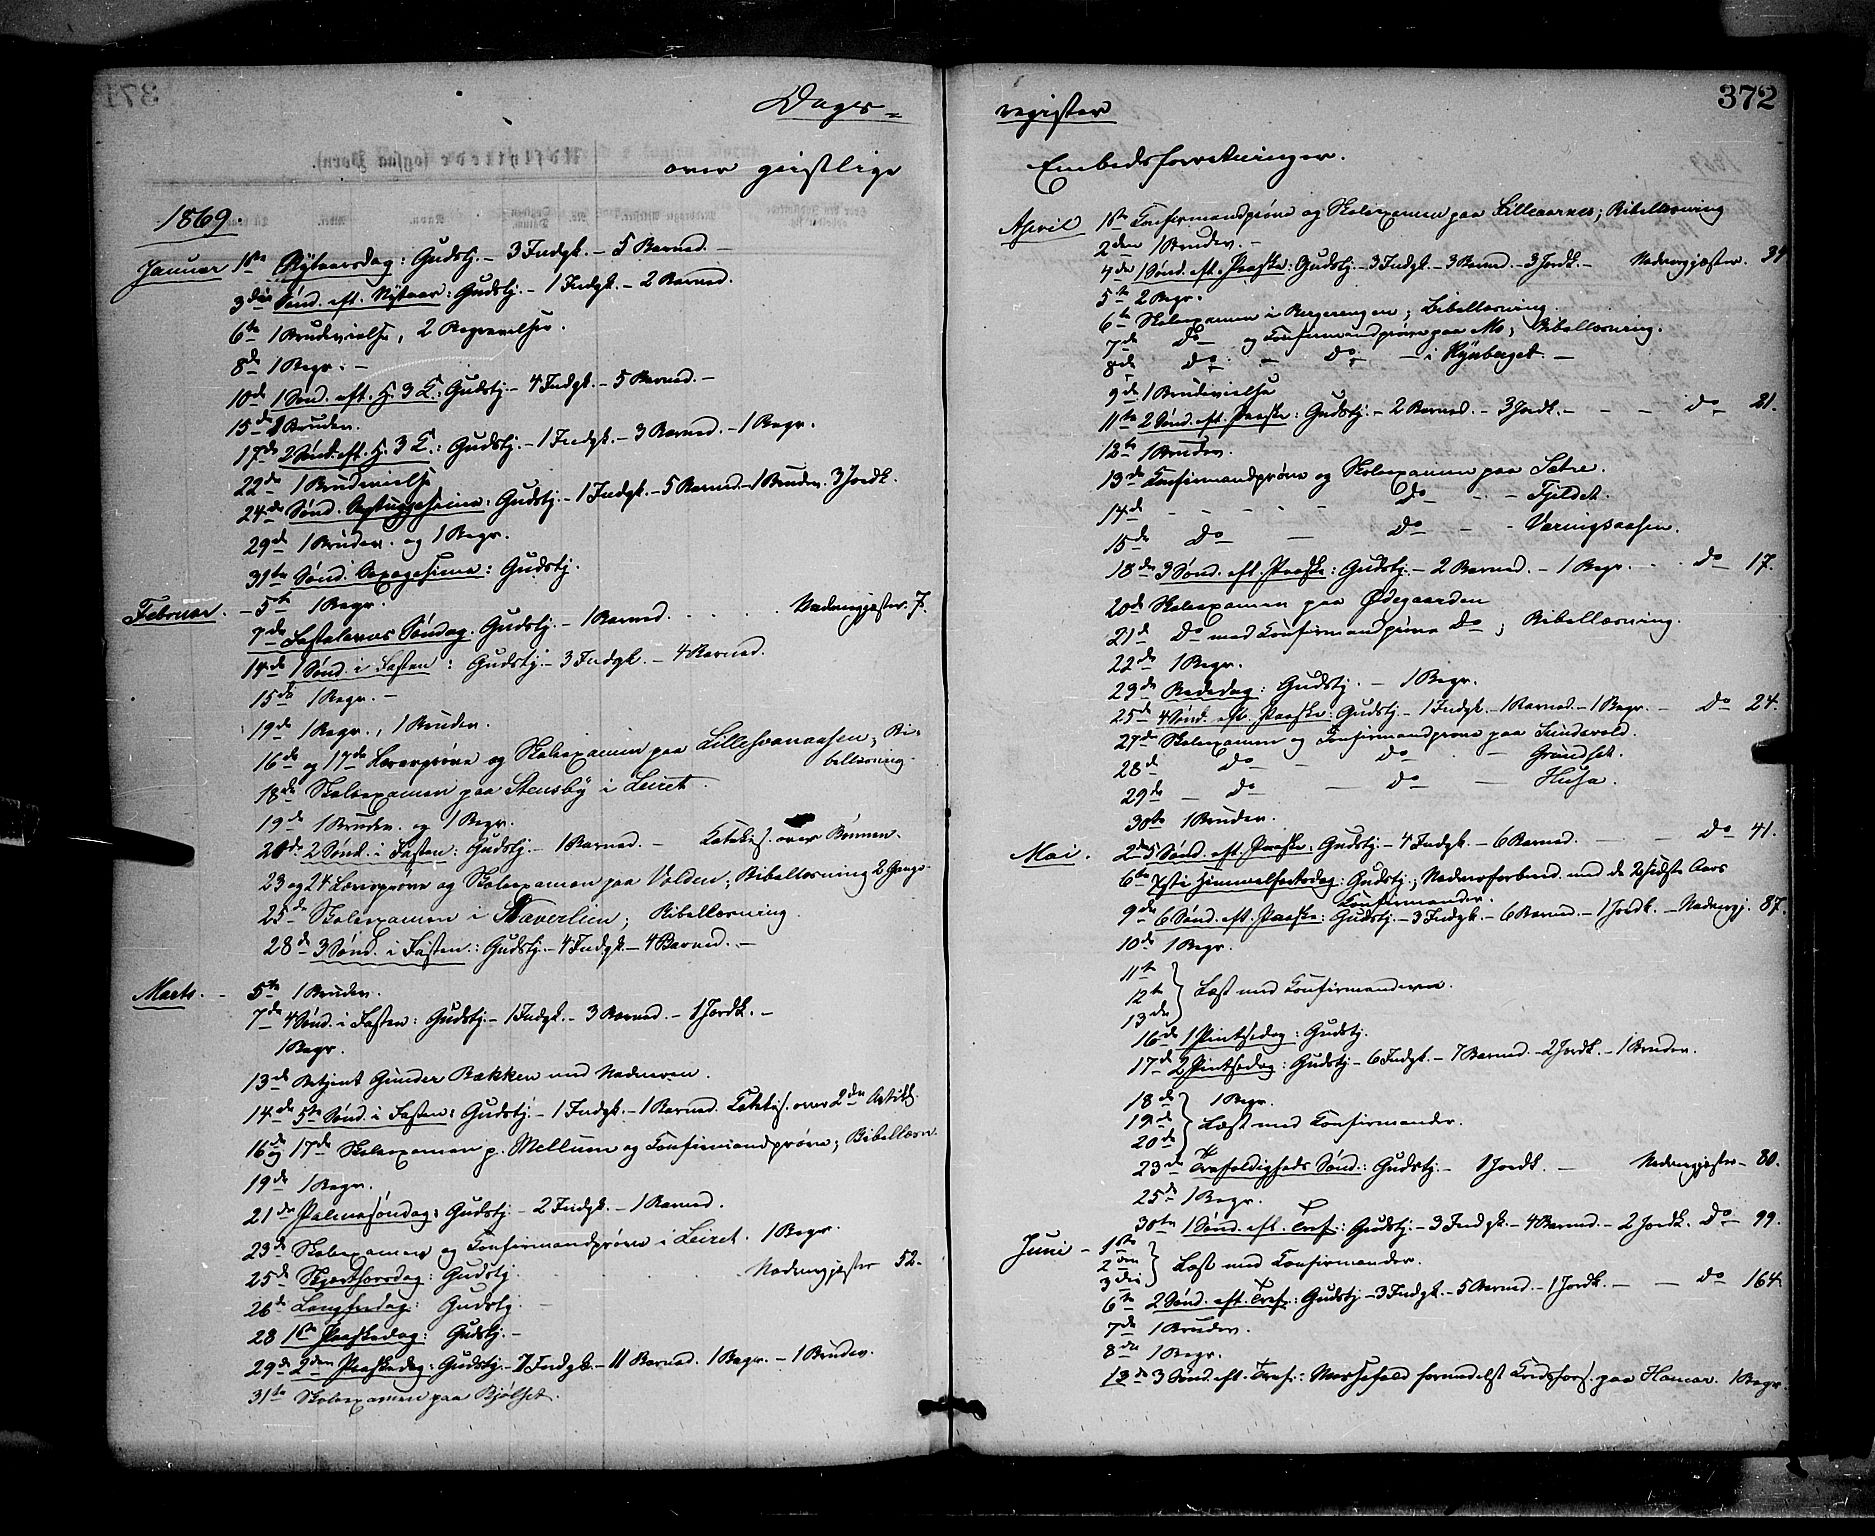 372
Dags-
register
over geistlige
Embedsforretninger.
1869.
Januar 1ste Nytaarsdag: Gudstj. – 3 Indgk. – 5 Barned. –
3die Sønd. eft. Nytaar: Gudstj. – 1 Indgk. – 2 Barned.
6te 1 Brudevielse, 2 Begravelser.
8de 1 Begr. –
10de 1 Sønd. eft. H. 3 K.: Gudstj. – 4 Indgk. – 5 Barned. –
15de 1 Brudev.
17de 2 Sønd. eft. H. 3 K.: Gudstj. – 1 Indgk. – 3 Barned. – 1 Begr.
22de 1 Brudevielse
24de Sønd. Septuagesima: Gudstj. – 1 Indgk. – 5 Barned. – 1 Brudev. 3 Jordk.
29de 1 Brudev. og 1 Begr.
31te Sønd. Sexagesima: Gudstj.
Februar. – 5te 1 Begr.
7de Fastelavns Søndag. Gudstj. – 1 Barned. Nadvergjæster. 7.
14de 1 Sønd. i Fasten: Gudstj. – 3 Indgk. – 4 Barned.
15de 1 Begr. –
19de 1 Begr., 1 Brudev.
16de og 17de Læseprøve og Skoleexamen paa Lillesvanaasen; Bi-
bellæsning.
18de Skoleexamen paa Stensby i Leiret.
19de 1 Brudev. og 1 Begr.
21de 2 Sønd. i Fasten: Gudstj. – 1 Barned. – Katekis. over Bønnen.
23 og 24 Læseprøve og Skoleexamen paa Volden; Bibellæsning 2 Gange.
25de Skoleexamen i Staverlien; Bibellæsning.
28de 3 Sønd. i Fasten: Gudstj. – 4 Indgk. – 4 Barned. –
Marts. – 5te 1 Brudev.
7de 4 Sønd. i Fasten: Gudstj. – 1 Indgk. – 3 Barned. – 1 Jordk. –
1 Begr.
13de Betjent Gunder Bækken med Nadveren.
14de 5te Sønd. i Fasten: Gudstj. – 1 Indgk. – 1 Barned. Katekis. over 2den Artikk.
16de og 17de Skoleexamen p. Mellum og Confirmandprøve; Bibellæsn.
19de 1 Begr.
21de Palmesøndag: Gudstj. – 2 Indgk. – 1 Barned.
23de Skoleexamen og Confirmandprøve i Leiret. 1 Begr.
25de Skjærthorsdag: Gudstj. Nadvergjæster 52.
26de Langfredag: Gudstj. –
28 1ste Paaskedag: Gudstj. –
29de 2den Paaskedag: Gudstj. – 7 Indgk. – 11 Barned. 1 Begr. – 1 Brudev.
31te Skoleexamen paa Bjølset.
April 1ste Confirmandprøve og Skoleexamen paa Lilleaarnes; Bibellæsning
2den 1 Brudev. –
4de 1 Sønd. eft. Paaske: Gudstj. – 3 Indgk. – 3 Barned. – 3 Jordk. – Nadvergjæster. 34
5te 2 Begr.
6te Skoleexamen i Bergerengen; Bibellæsning.
7de Do og Confirmandprøve paa Mo; Bibellæsning.
8de Do – Do – i Nyberget –
9de 1 Brudevielse
11te 2 Sønd. eft. Paaske: Gudstj. – 2 Barned. – 3 Jordk. – – – Do 21.
12te 1 Brudev.
13de Confirmandprøve og Skoleexamen paa Sætre.
14de – – – – Do – – Fjeldet.
15de Do – Do – – Væringsaasen.
18de 3 Sønd. eft. Paaske: Gudstj. – 2 Barned. – 1 Begr. – Do 17.
20de Skoleexamen paa Ødegaarden
21de Do med Confirmandprøve Do; Bibellæsning.
22de 1 Begr.
23de Bededag: Gudstj. – 1 Begr.
25de 4 Sønd. eft. Paaske: Gudstj. – 1 Indgk. – 1 Barned. – 1 Begr. – Do 24.
27de Skoleexamen og Confirmandprøve paa Sundevold.
28de Do – Do – Grundset.
29de – Do – Do – Husa.
30te 1 Brudev.
Mai. 2den 5 Sønd. eft. Paaske: Gudstj. – 4 Indgk. – 6 Barned. – Do 41.
6te Xsti Himmelfartsdag: Gudstj.; Nadverforbered. med de 2 sidste Aars
Confirmander.
9de 6 Sønd. eft. Paaske: Gudstj. – 3 Indgk. – 6 Barned. – 1 Jordk. – Nadvergj. 87.
10de 1 Begr.
11te
12te } Læst med Confirmanderne.
13de
16de 1 Pintsedag: Gudstj.
17de 2 Pintsedag: Gudstj. – 6 Indgk. – 7 Barned. – 2 Jordk. – 1 Brudev.
18de 1 Begr.
19de } Læst med Confirmander.
20de
23de Trefoldigheds Sønd.: Gudstj. – 1 Jordk. – Nadvergjæster – 80.
25de 1 Begr.
30te 1 Sønd. eft. Tref.: Gudstj. – 3 Indgk. – 4 Barned. – 2 Jordk. Do 99.
Juni – 1ste
2den } Læst med Confirmander.
3die
6te 2 Sønd. eft. Tref.: Gudstj. – 3 Indgk. – 5 Barned. – 1 Jordk. – – Do 164
7de 1 Brudev.
8de 1 Begr.
13de 3 Sønd. eft. Tref.: Messefald formedelst Kredsfors. paa Hamar. 1 Begr.